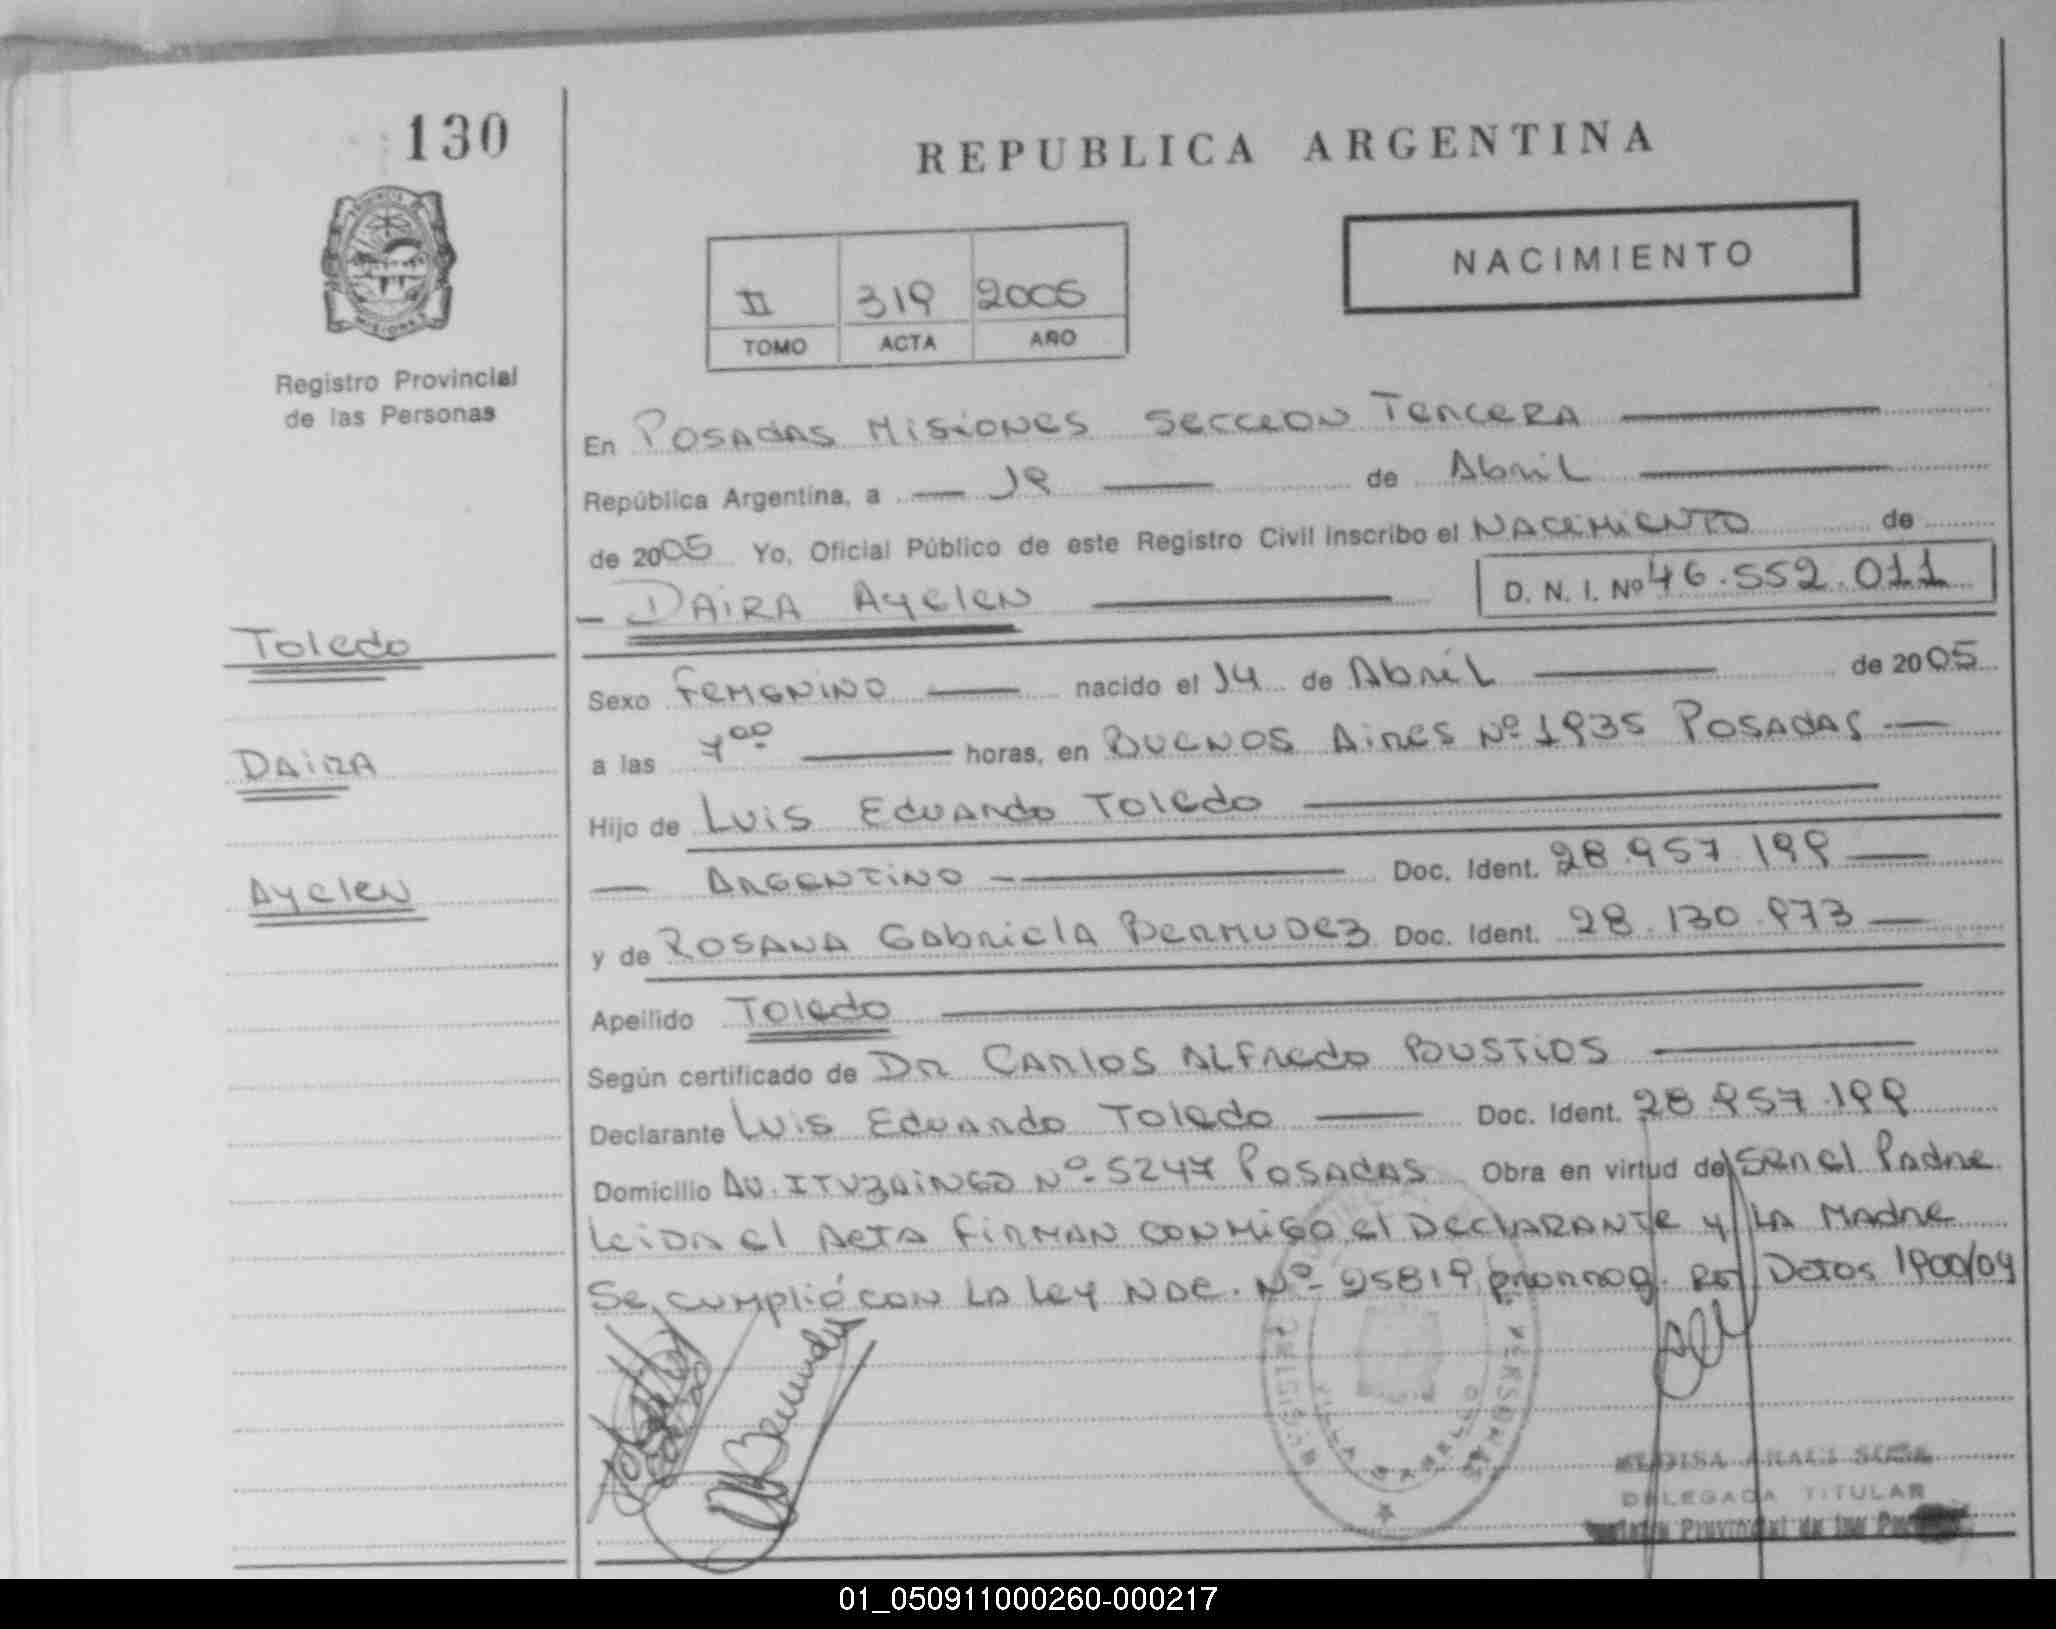 130
REPUBLICA ARGENTINA
NACIMIENTO
II 319 2005
TOMO ACTA AÑO
Registro Provincial
de las Personas
En Posadas Misiones Seccion Tercera
República Argentina, a 19 de Abril
de 2005 Yo, Oficial Público de este Registro Civil inscribo el Nacimiento de
Daira Ayelen D. N. I. Nº 46.552.011
Toledo
Daira
Ayelen
Sexo Femenino nacido el 14 de Abril de 2005
a las 7 00 horas, en Buenos Aires Nº 1935 Posadas
Hijo de Luis Eduardo Toledo
Argentino Doc. Ident. 28.957.199
y de Rosana Gabriela Bermudez Doc. Ident. 28.130.973
Apellido Toledo
Según certificado de Dr Carlos Alfredo Bustios
Declarante Luis Eduardo Toledo Doc. Ident. 28.957.199
Domicilio Av. Ituzaingo Nº 5247 Posadas Obra en virtud de ser el Padre
Leida el Acta firman conmigo el Declarante y la Madre
Se cumplió con la Ley Nac. Nº 25819 prorrog. por Dctos 1900/04
Bermudez
VILLA CABELLO
DELEGADA TITULAR
Provincial de las
01_050911000260-000217